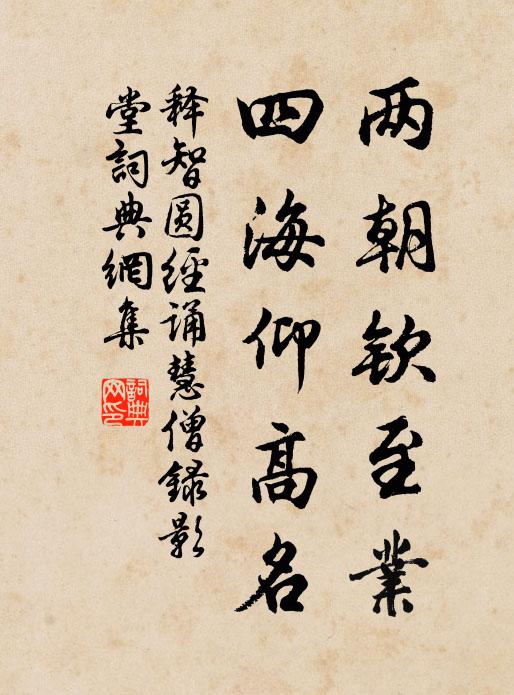 两朝钦至業
四海仰高名
释智圆經诵慧僧録影
堂詞典網集
詞典
网印